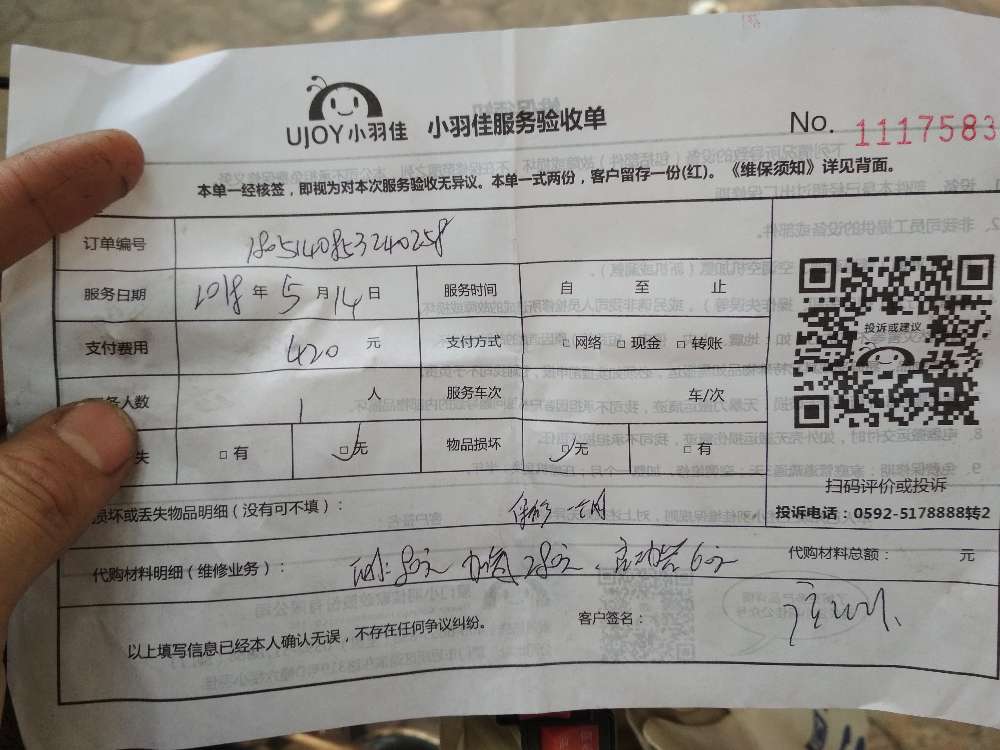 UJOY小羽佳 小羽佳服务验收单 No. 1117583
本单一经核签，即视为对本次服务验收无异议。本单一式两份，客户留存一份(红)。《维保须知》详见背面。
订单编号 1805140853240258
服务日期 2018 年 5 月 14 日 服务时间 自 至 止
支付费用 420 元 支付方式 □ 网络 □ 现金 □ 转账
投诉或建议
务人数 1 人 服务车次 车/次
失 □ 有 □ 无 物品损坏 □ 无 □ 有
扫码评价或投诉
损坏或丢失物品明细（没有可不填）： 保修一个月
投诉电话：0592-5178888转2
代购材料明细（维修业务）： 80元 加氟280元、启动器60元 代购材料总额： 元
以上填写信息已经本人确认无误，不存在任何争议纠纷。 客户签名：